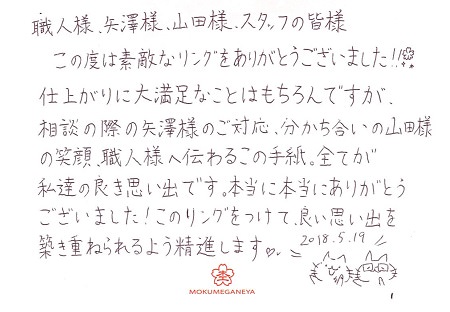 職人様、矢澤様、山田様、スタッフの皆様
この度は素敵なリングをありがとうございました!!
仕上がりに大満足なことはもちろんですが、
相談の際の矢澤様のご対応、分かち合いの山田様
の笑顔、職人様へ伝わるこの手紙。全てが
私達の良き思い出です。本当に本当にありがとう
ございました!このリングをつけて、良い思い出を
築き重ねられるよう精進します♡。
2018.5.19
MOKUMEGANEYA